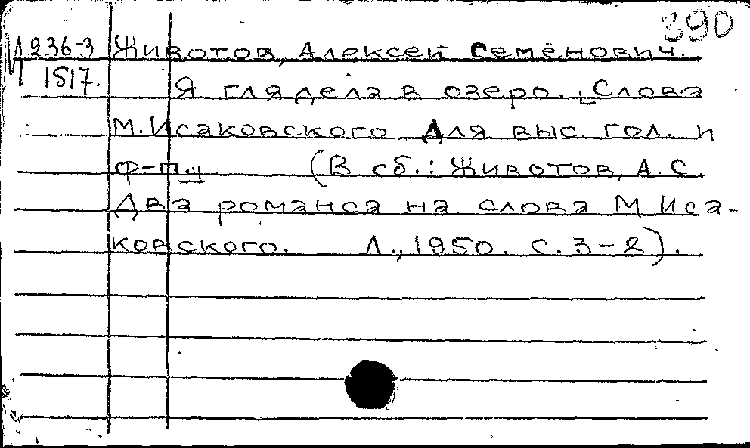 390
М 236-3 Животов, Алексей Семёнович.
1517. Я глядела в озеро. Слова
М.Исаковского Для выс. гол. и
ф-п.
(В сб.: Животов, А.С.
Два романса на слова М Иса-
ковского. Л., 1950. с. 3-8).